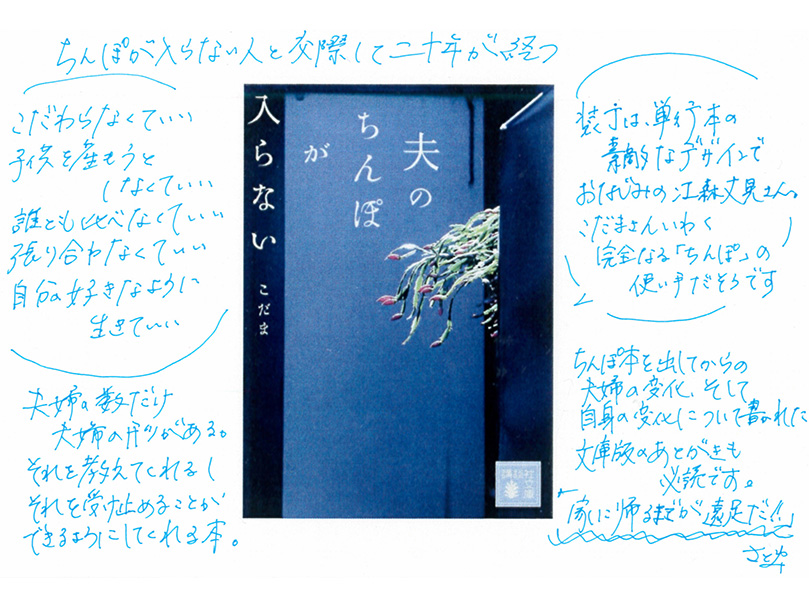 ちんぽが入らない人と交際して二十年が経つ
こだわらなくていい
子供を産もうと
しなくていい
誰とも比べなくていい
張り合わなくていい
自分の好きなように
生きていい
夫婦の数だけ
夫婦の形がある。
それを教えてくれるし
それを受け止めることが
できるようにしてくれる本。
夫の
ちんぽ
が
入らない
こだま
講談社
文庫
装丁は、単行本の
素敵なデザインで
おなじみの江森丈晃さん。
こだまさんいわく
完全なる「ちんぽ」の
使い手だそうです
ちんぽ本を出してからの
夫婦の変化、そして
自身の変化について書かれた
文庫版のあとがきも
必読です。
「家に帰るまでが遠足だ!!」
さとや